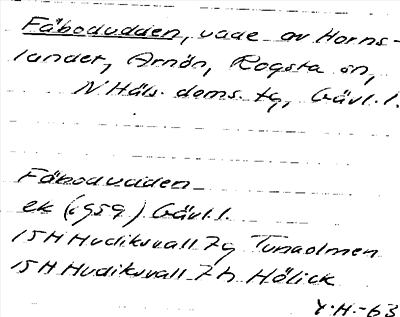 Fäbodudden, udde av Horns-
landet, Arnön, Rogsta sn,
N Häls. doms. tg, Gävl. l.
Fäbodudden
ek (1959) Gävl. l.
15H Hudiksvall 7g Tunaolmen
15H Hudiksvall 7h Hölick
Y.H.-63